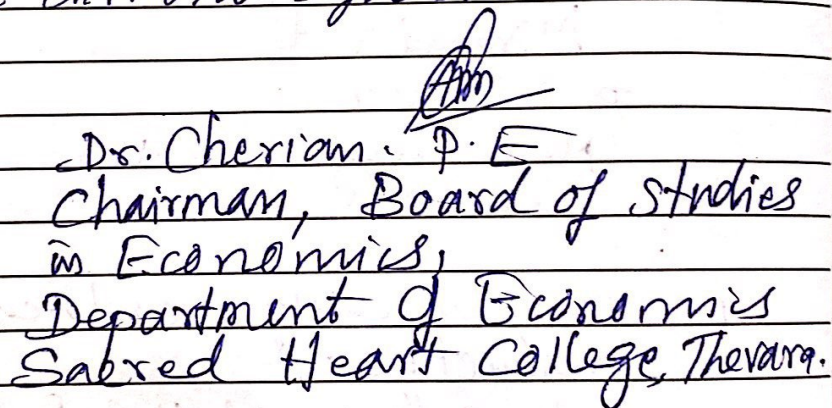 Dr. Cherian. P.E
Chairman, Board of Studies
in Economics,
Department of Economics
Sacred Heart College, Thevara.